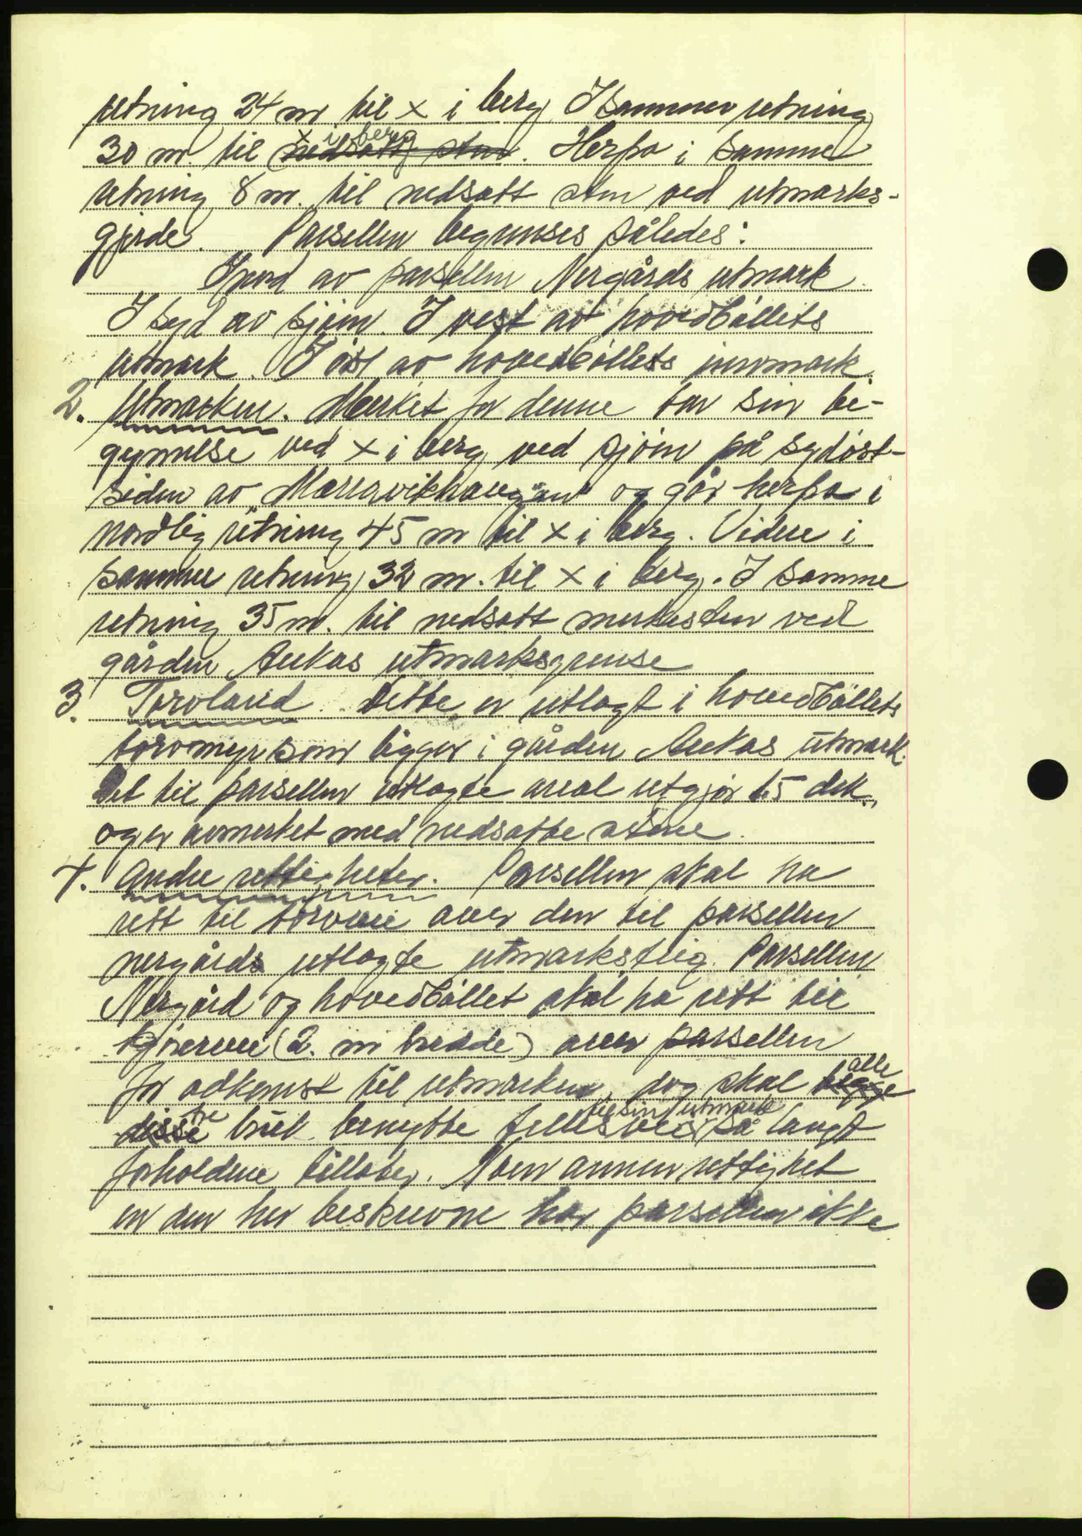 retning 24 m til × i berg. I samme retning
30 m. til × i berg nedsatt sten. Herfra i samme
retning 8 m. til nedsatt sten ved utmarks-
gjerde. Parsellen begrenses således:
I nord av parsellen Nergårds utmark
I syd av sjøen. I vest av hovedbøllets
utmark. I øst av hovedbøllets innmark.
2. Utmarken. Merket for denne tar sin be-
gynnelse ved × i berg ved sjøen på sydøst-
siden av og går herfra i
nordlig retning 45 m til × i berg. Videre i
samme retning 32 m. til × i berg. I samme
retning 35 m. til nedsatt merkesten ved
gården utmarksgrense
3. Torvland. Dette er utlagt i hovedbøllets
torvmyr som ligger i gården utmark.
Det til parsellen utlagte areal utgjør 1.5 dek.,
og er avmerket med nedsatte stene.
4. Andre rettigheter. Parsellen skal ha
rett til torvvei over den til parsellen
nergårds utlagte utmarksteig. Parsellen
Nergård og hovedbøllet skal ha rett til
kjørevei (2. m bredde) over parsellen
for adkomst til utmarken, dog skal begge alle
disse tre bruk benytte fellesvei til sin utmark så langt
forholdene tillater. Noen annen rettighet
en den her beskrevne har parsellen ikke.